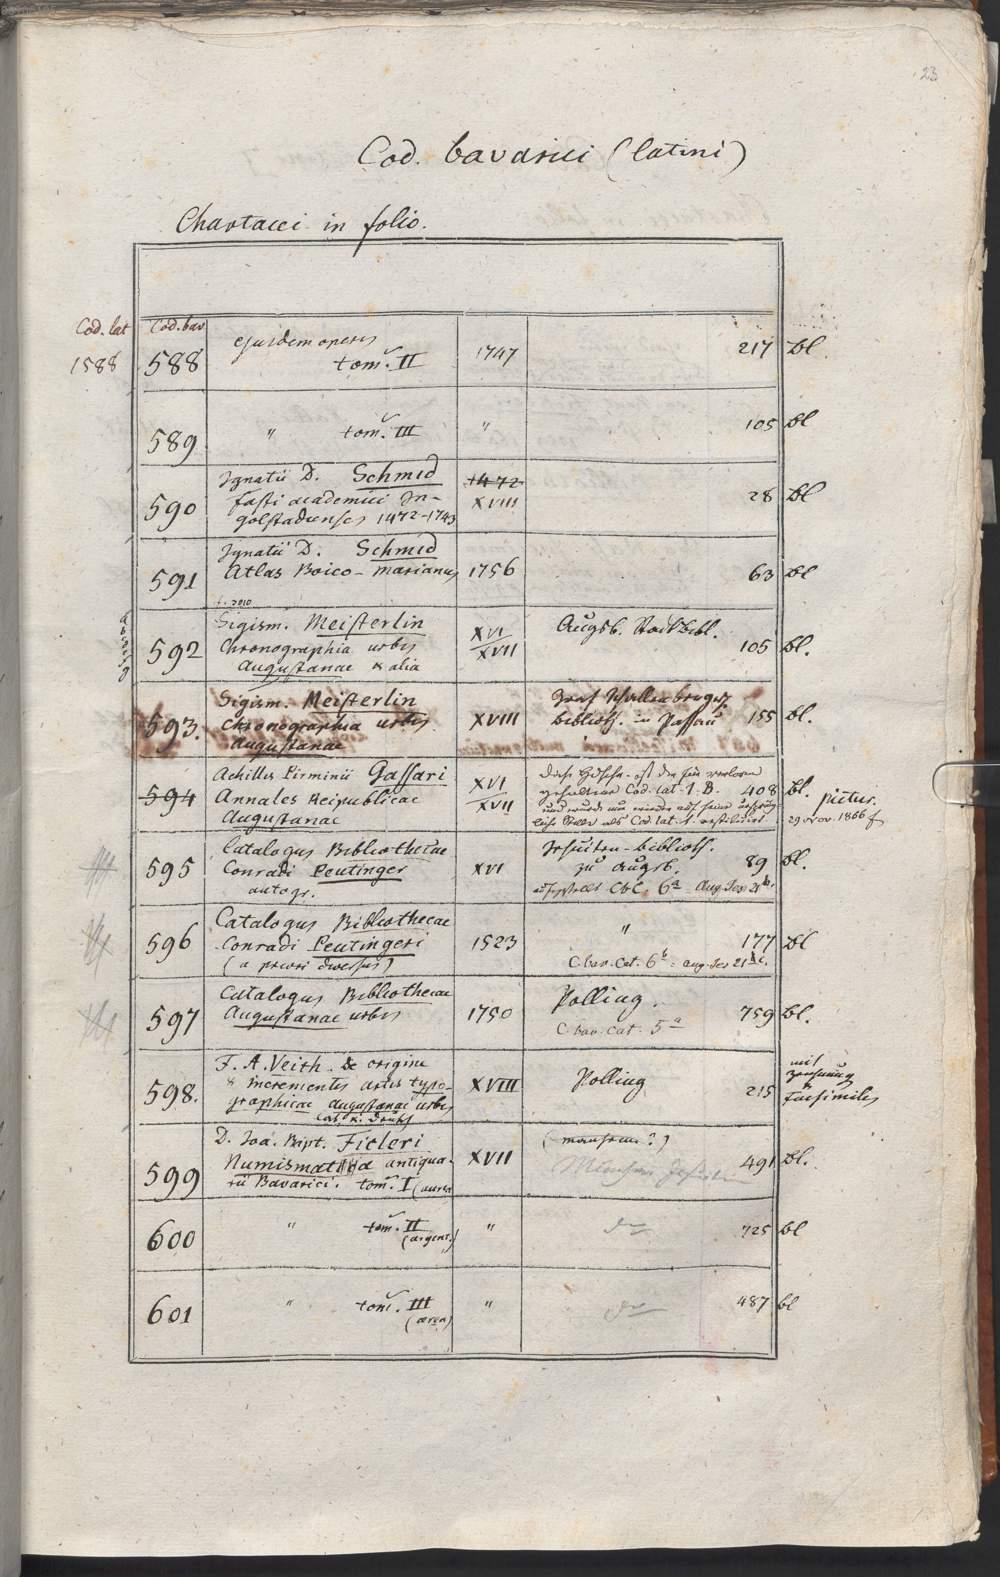 23
Cod. bavarici (latini)
Chartacei in folio.
Cod. lat
Cod. bav
1588
588
ejusdem operis
tom. II
1747
217
bl
589
" tom. III
"
105
bl
590
Ignatii D. Schmid
fasti academici In-
golstadienses 1472-1743
1472
XVIII
28
bl
591
Ignatii D. Schmid
Atlas Boico-Marianus
1756
63
bl
592
Sigism. Meisterlin
Chronographia urbis
Augustanae & alia
XVI
XVII
Augsb. Stadtbibl.
105
bl.
593.
Sigism. Meisterlin
Chronographia urbis
Augustanae
XVIII
biblioth. in Passau
155
bl.
594
Achillis Pirminii Gassari
Annales Reipublicae
Augustanae
XVI
XVII
Diese Hdschr. ist die für verloren
gehaltene Cod. lat. 1. B.
und wurde nun wieder auf seine ursprüng-
liche Stelle als Cod. lat. 1. restituirt
408
bl.
pictur.
29 Nov. 1866
595
Catalogus Bibliothecae
Conradi Peutinger
autogr.
XVI
Jesuiten-biblioth.
zu Augsb.
89
bl.
596
Catalogus Bibliothecae
Conradi Peutingeri
(a priori diversus)
1523
"
C. bav. Cat. 6
177
bl
597
Catalogus Bibliothecae
Augustanae urbis
1750
Polling.
C. bav. Cat. 5
759
bl.
598.
F. A. Veith. de origine
& incrementis artis typo-
graphicae augustanae urbis
XVIII
Polling
215
mit
Zeichnung
u
Facsimiles
599
D. Joa. Bapt. Ficleri
Numismata antiqua-
rii Bavarici. tom. I (aurea
XVII
491
bl.
600
" tom. II
(argent.)
"
725
bl
601
" tom. III
(aerea)
"
487
bl